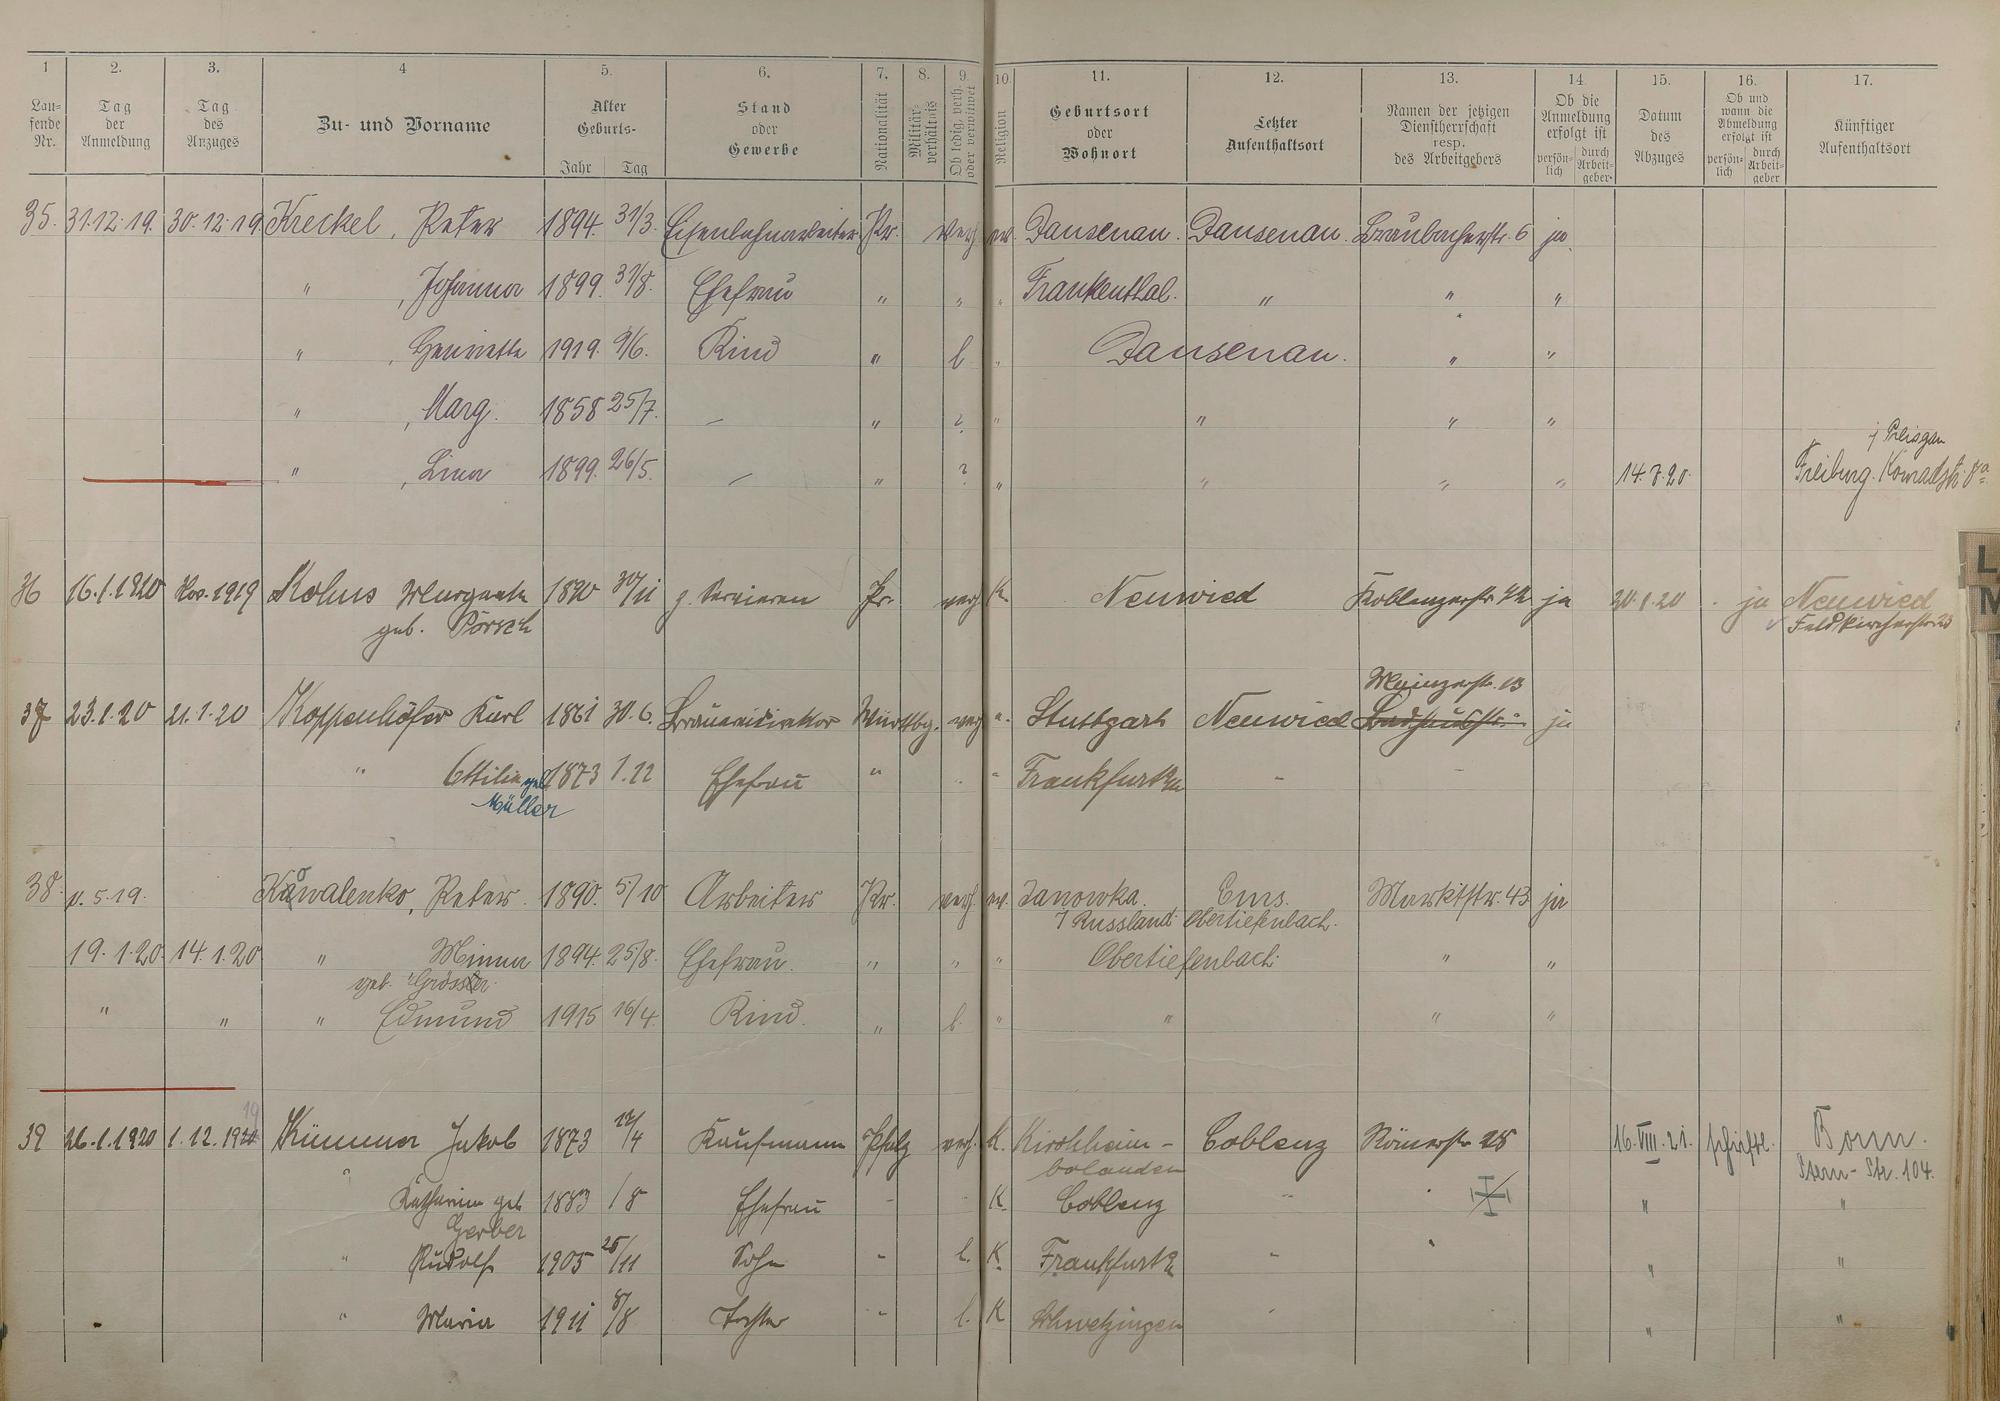 1 2. 3. 4 5. 6. 7. 8. 9. 10. 11. 12. 13. 14. 15. 16. 17.
Lau-
fende
Nr.
Tag
der
Anmeldung
Tag
des
Anzuges
Zu- und Vorname
Alter
Geburts-
Jahr Tag
Stand
oder
Gewerbe
Nationalität
Militär-
verhältnis
Ob ledig, verh.
oder verwitwet
Religion
Geburtsort
oder
Wohnort
Letzter
Aufenthaltsort
Namen der jetzigen
Dienstherrschaft
resp.
des Arbeitgebers
Ob die
Anmeldung
erfolgt ist
persön-
lich
durch
Arbeit-
geber
Datum
des
Abzuges
Ob und
wann die
Abmeldung
erfolgt ist
persön-
lich
durch
Arbeit-
geber
Künftiger
Aufenthaltsort
35. 31.12.19. 30.12.19. Kreckel, Peter 1894. 31/3. Eisenbahnarbeiter Pr. verh. ev. Dausenau. Dausenau. Braubacherstr. 6 ja.
" , Johanna 1899. 31/8. Ehefrau " " " Frankenthal. " " "
" , Henriette 1919. 9/6. Kind " l. " Dausenau. " "
" , Marg. 1858 25/7. — " ? " " " "
" , Lina 1899. 26/5. — " ? " " " " 14.7.20. Freiburg i/Breisgau Konradstr. 8a
36 16.1.1920 Nov. 1919 Kohns Margarete 1890 30/11 Pr. verh. K. Neuwied Koblenzerstr. 42 ja 20.1.20 ja Neuwied
geb. Pörsch Feldkircherstr. 23
Mainzerstr. 13
37 23.1.20 21.1.20 Koppenhöfer Karl 1861 30.6. Brauereidirektor Württbg. verh. e. Stuttgart Neuwied ja
" Ottilie geb. 1873 1.12 Ehefrau " " Frankfurt a/M "
Müller
38. 5.19. Kowalenko, Peter. 1890. 5/10 Arbeiter Pr. verh. ev. Janowka. Ems. Marktstr. 43 ja
i/Russland Obertiefenbach.
19.1.20. 14.1.20 " Minna 1894. 25/8. Ehefrau. " " " Obertiefenbach. " "
geb. Grösser.
" " " Edmund 1915 16/4. Kind. " l. " " " "
39 26.1.1920 1.12.1919 Kümmer Jakob 1873 12/4 Kaufmann Pfalz verh. K. Kirchheim- Coblenz Römerstr. 28 16.VIII.21. schriftl. Bonn.
bolanden Stern-Str. 104.
" Katharina geb. 1883 /8 Ehefrau " K. Coblenz " " "
Gerber
" Rudolf 1905 25/11 Sohn " l. K. Frankfurt " " "
" Maria 1911 8/8 Tochter " l. K Schwetzingen " "